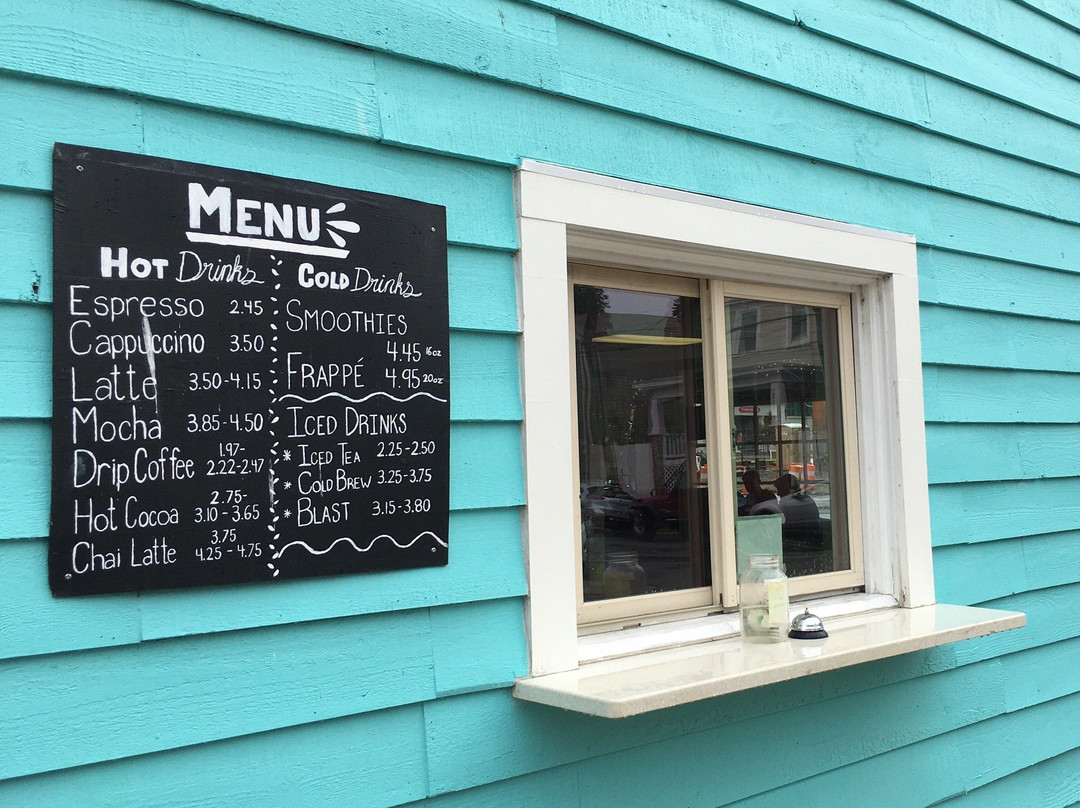 MENU
HOT Drinks
Espresso 2.45
Cappuccino 3.50
Latte 3.50-4.15
Mocha 3.85-4.50
Drip Coffee 1.97-
2.22-2.47
Hot Cocoa 2.75-
3.10-3.65
Chai Latte 3.75
4.25-4.75
COLD Drinks
SMOOTHIES
4.45 16oz
FRAPPÉ 4.95 20oz
ICED DRINKS
* ICED TEA 2.25-2.50
* COLD BREW 3.25-3.75
* BLAST 3.15-3.80